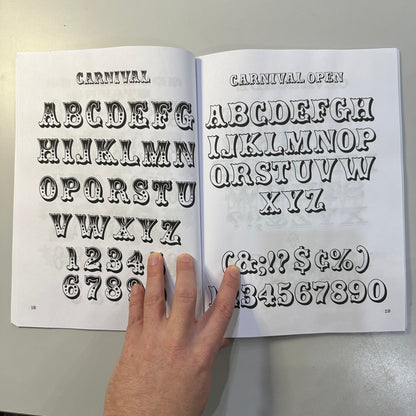 CARNIVAL
ABCDEFG
HIJKLMN
OPQRSTU
VWXYZ
1234
678
18
CARNIVAL OPEN
ABCDEFGH
IJKLMNOP
QRSTUVW
XYZ
(&;!?$¢%)
1234567890
19